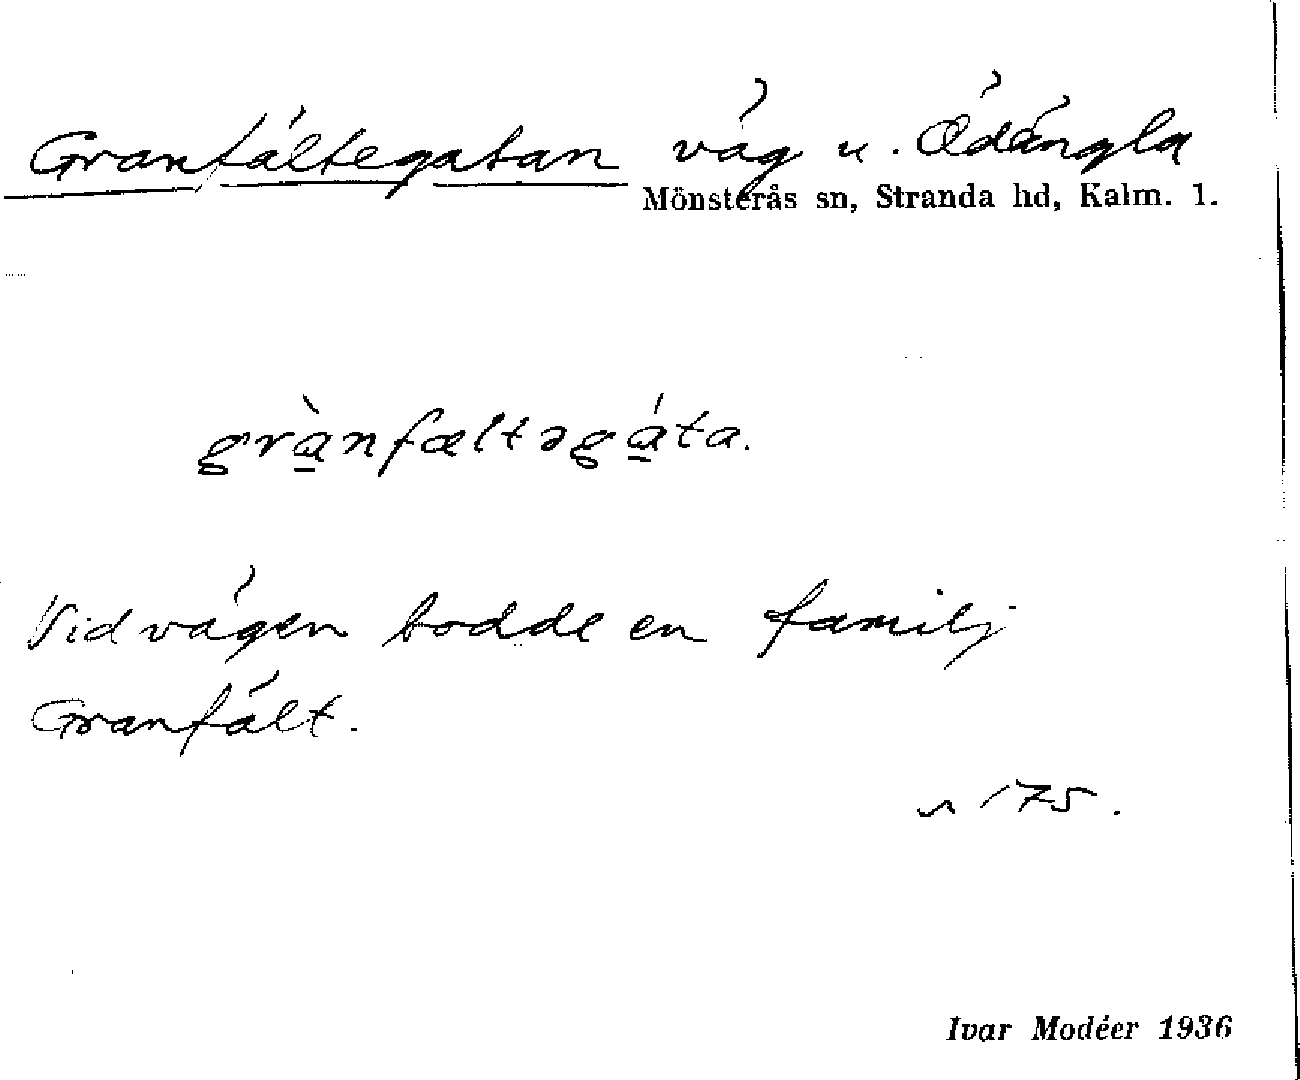 Granfältegatan väg u. Ödängla
Mönsterås sn, Stranda hd, Kalm. l.
grànfæltəgáta.
Vid vägen bodde en familj
Granfält.
175.
Ivar Modéer 1936